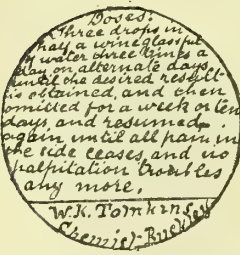 Doses:
Three drops in
half a wineglassful
of water three times a
day on alternate days
until the desired result
is obtained, and then
omitted for a week or ten
days, and resumed
again until all pain in
the side ceases, and no
palpitation troubles
any more.
W. K. Tomkins,
Chemist - Buckley